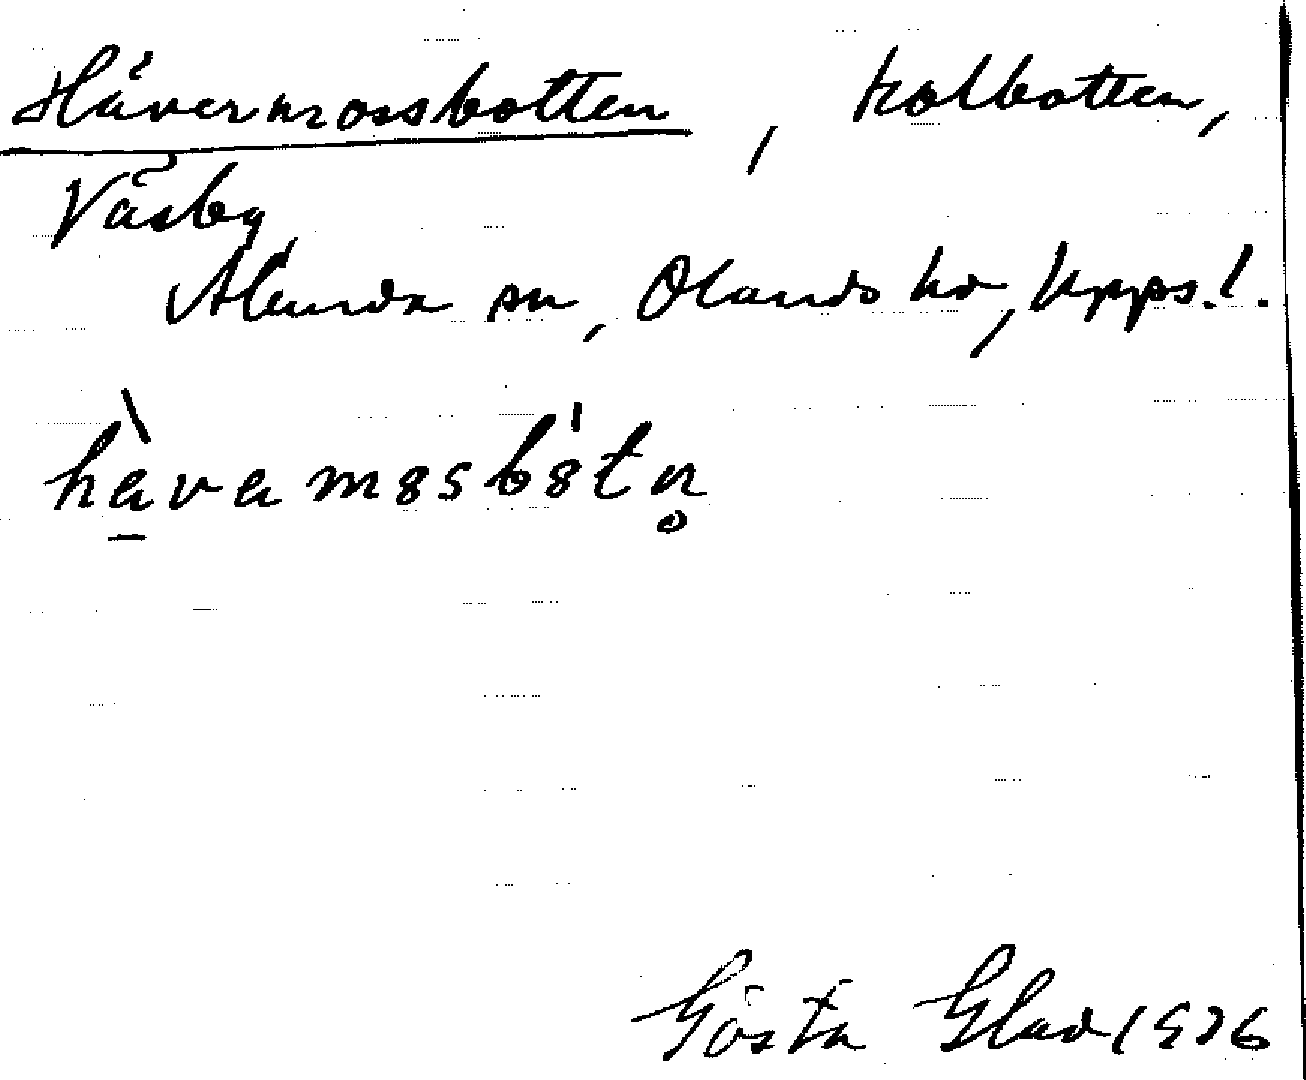 Hävermossbotten, kolbotten,
Väsby
Alunda sn, Olands hd, Upps.l.
Gösta Glad 1926